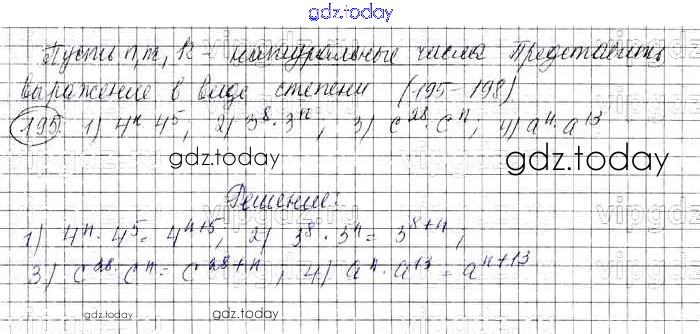 gdz.today
Пусть n, m, k - натуральные числа Представить
выражение в виде степени (195-198)
195. 1) 4ⁿ·4⁵, 2) 3⁸·3ⁿ, 3) c²⁸·cⁿ; 4) aⁿ·a¹³
gdz.today gdz.today
Решение:
1) 4ⁿ·4⁵=4ⁿ⁺⁵, 2) 3⁸·3ⁿ=3⁸⁺ⁿ;
3) c²⁸·cⁿ=c²⁸⁺ⁿ, 4) aⁿ·a¹³=aⁿ⁺¹³
gdz.today gdz.today